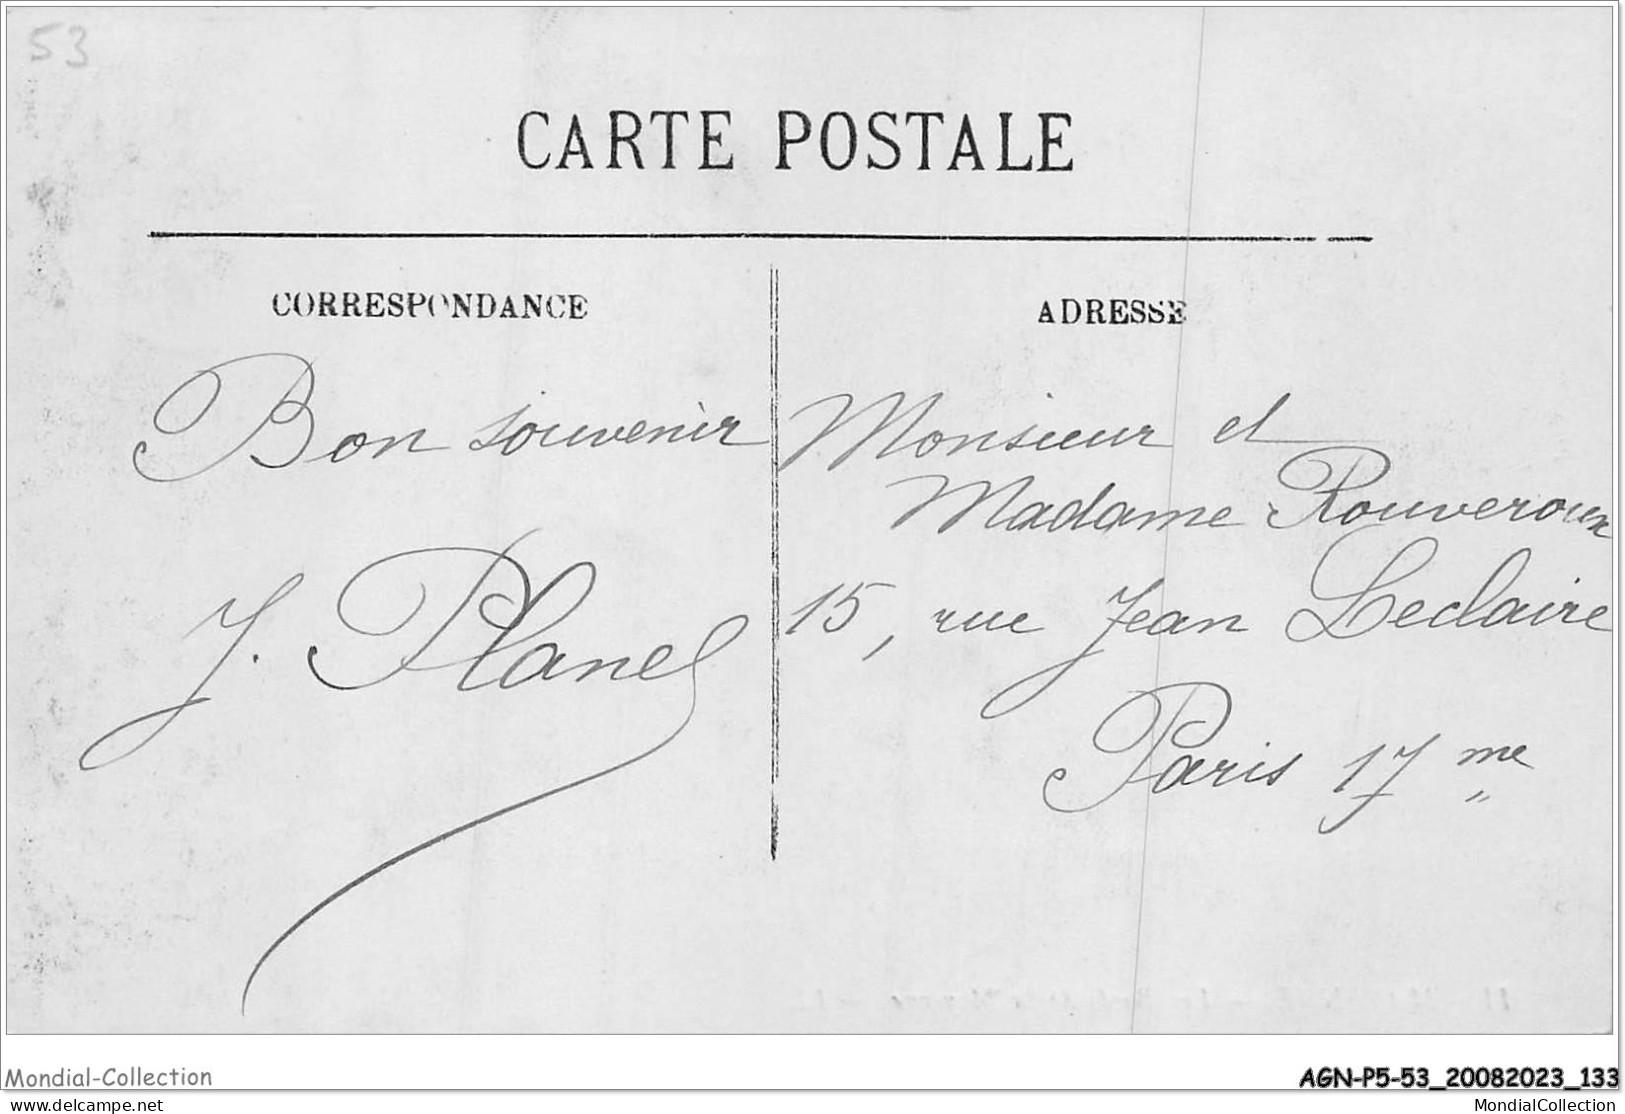 53
CARTE POSTALE
CORRESPONDANCE
ADRESSE
Bon souvenir
J. Planel
Monsieur et
Madame Rouveroux
15, rue Jean Leclaire
Paris 17 me
Mondial-Collection
AGN-P5-53_20082023_133
www.delcampe.net
MondialCollection